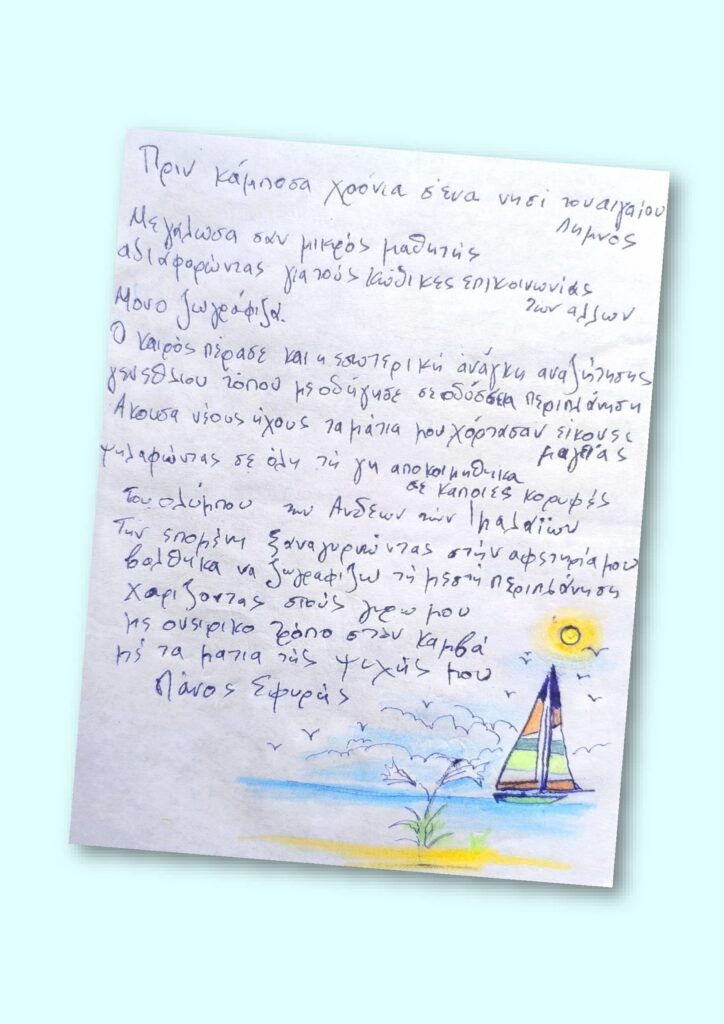 Πριν κάμποσα χρόνια σ'ένα νησί του αιγαίου
Λημνός
Μεγάλωσα σαν μικρός μαθητής
αδιαφορώντας για τούς κώδικες επικοινωνίας
των αλλων
Μόνο ζωγράφιζα.
Ο καιρός πέρασε και η εσωτερική ανάγκη αναζήτησης
γενεθλιου τόπου με οδήγησε σε οδύσσεια περιπλάνηση
Ακουσα νέους ήχους τα μάτια μου χόρτασαν είκονες
μαγείας
ψηλαφώντας σε όλη τή γη αποκοιμηθηκα
σε καποιες κορυφές
του ολύμπου των Ανδεων τών Ιμαλαΐων
Την επομένη ξαναγυρνώντας στήν αφετηρία μου
βαλθηκα να ζωγραφίζω τή μεστή περιπλάνηση
χαρίζοντας στούς γυρω μου
με ονειρικο τρόπο στον καμβά
μέ τα ματια τής ψυχής μου
Πάνος Σφυρής